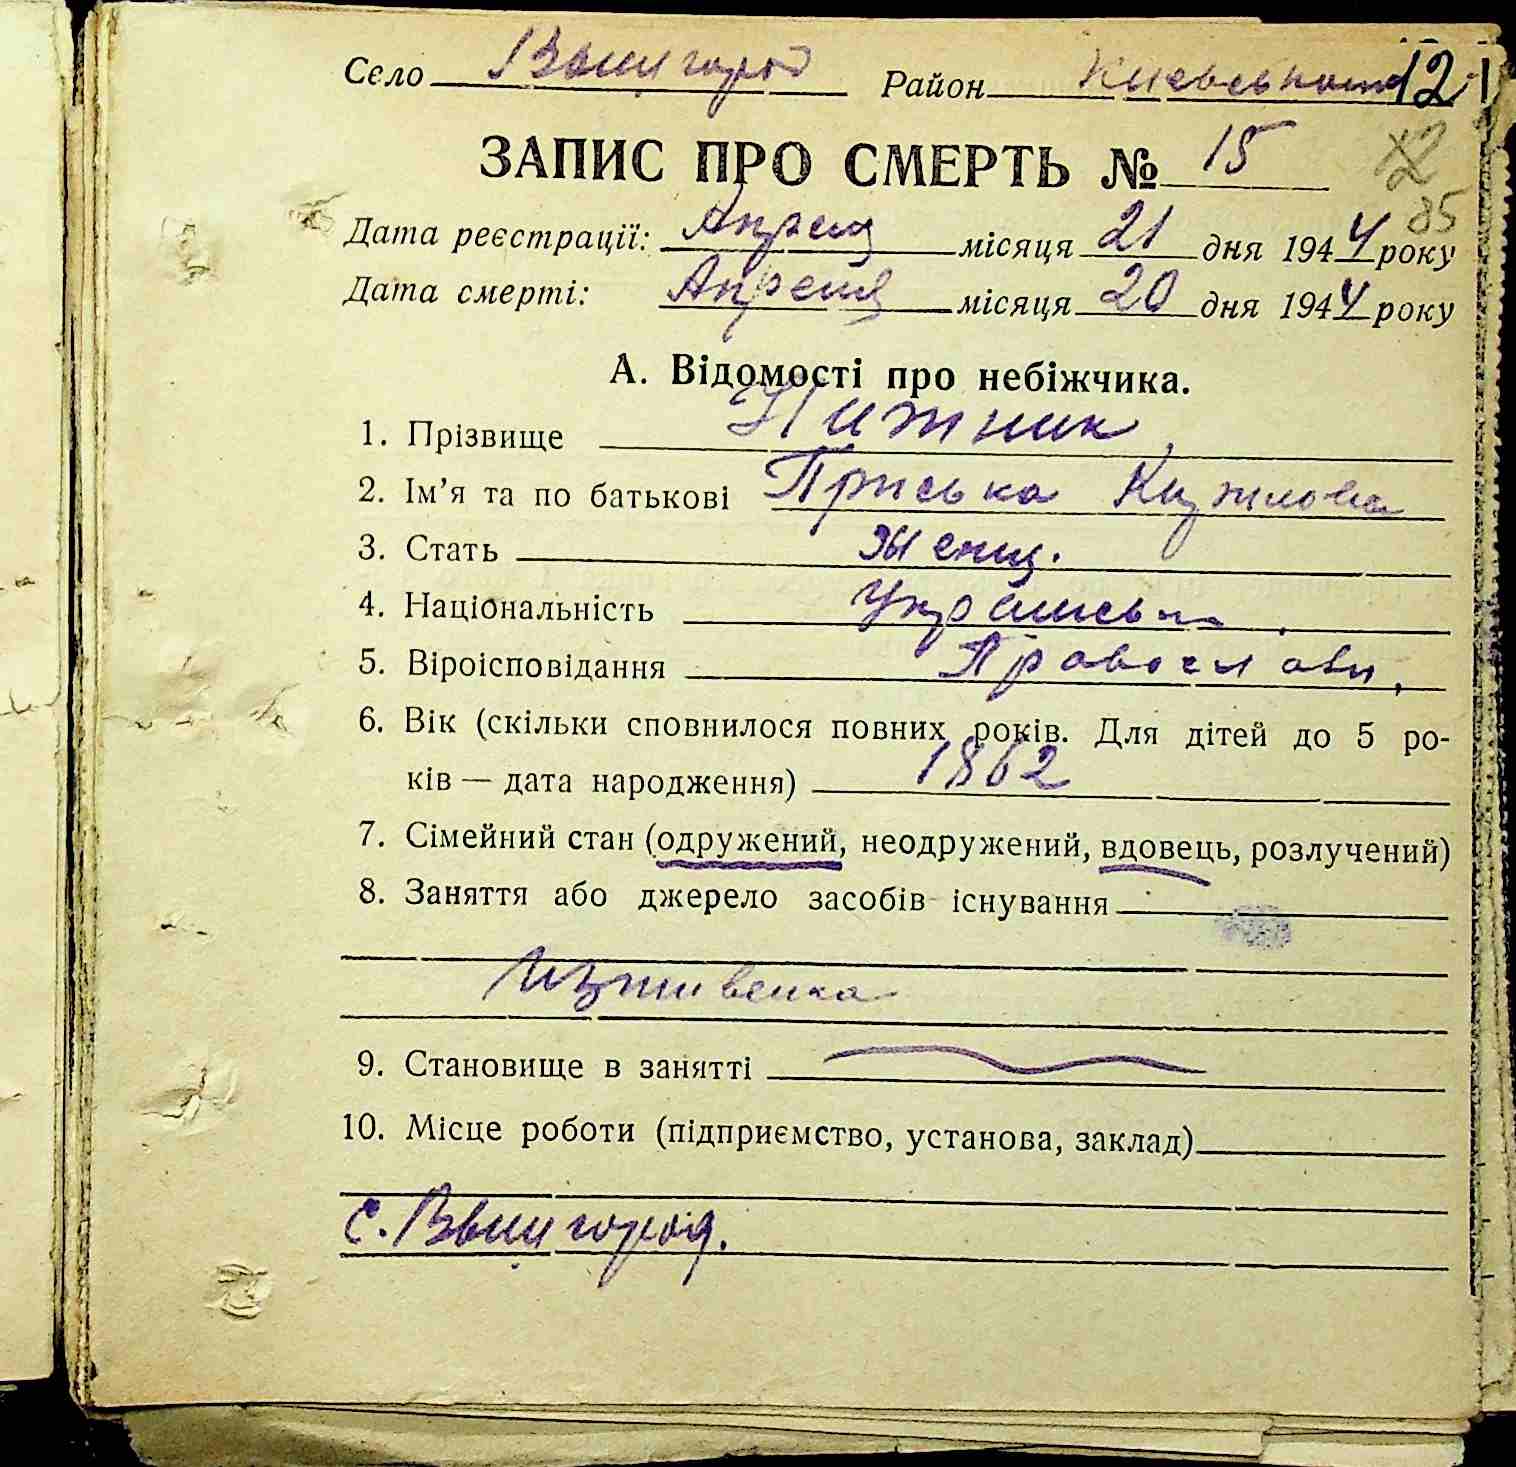 Село Вышгород Район Киевський 12
ЗАПИС ПРО СМЕРТЬ № 15 12
35
Дата реєстрації: Апреля місяця 21 дня 1944 року
Дата смерті: Апреля місяця 20 дня 1944 року
А. Відомості про небіжчика.
1. Прізвище Нижник
2. Ім'я та по батькові Приська
3. Стать женщ.
4. Національність Українськ.
5. Віроісповідання Православн.
6. Вік (скільки сповнилося повних років. Для дітей до 5 ро-
ків — дата народження) 1862
7. Сімейний стан (одружений, неодружений, вдовець, розлучений)
8. Заняття або джерело засобів існування
Иждивенка
9. Становище в занятті
10. Місце роботи (підприємство, установа, заклад)
с. Вышгород.